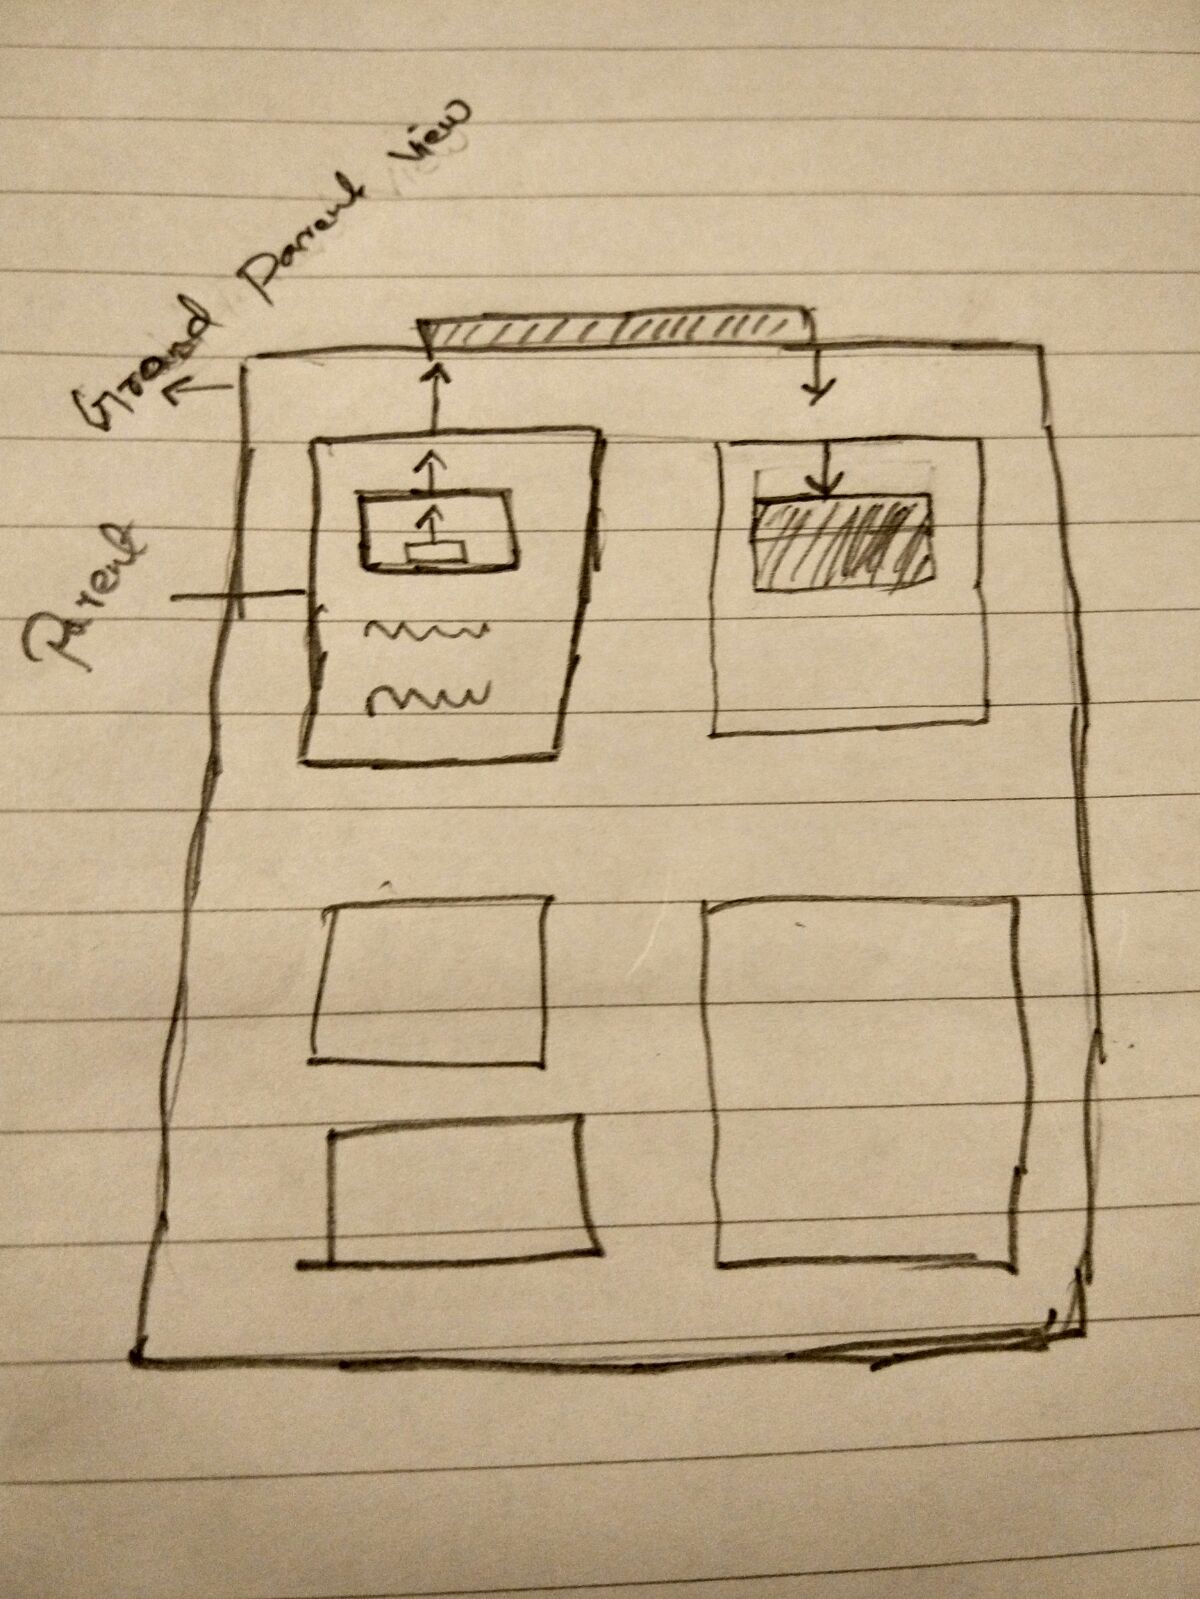 Grand Parent View
Parent